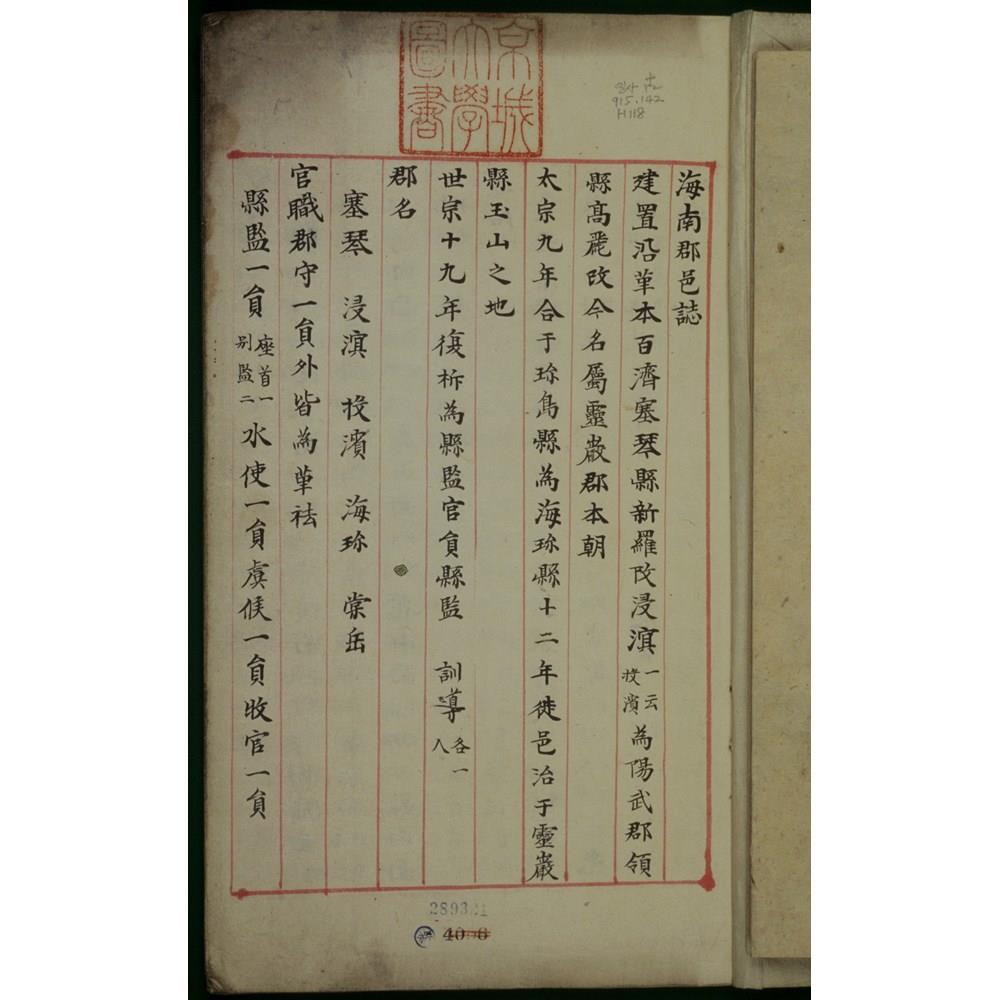 京城
大學
圖書
915.142
H118
海南郡邑誌
建置沿革本百濟塞琴縣新羅改浸溟一云投濱為陽武郡領
縣高麗改今名屬靈巖郡本朝
太宗九年合于珍島縣為海珍縣十二年徙邑治于靈巖
縣玉山之地
世宗十九年復析為縣監官員縣監 訓導各一人
郡名
塞琴 浸溟 投濱 海珍 棠岳
官職郡守一員外皆為革祛
縣監一員座首一別監二水使一員虞候一員牧官一員